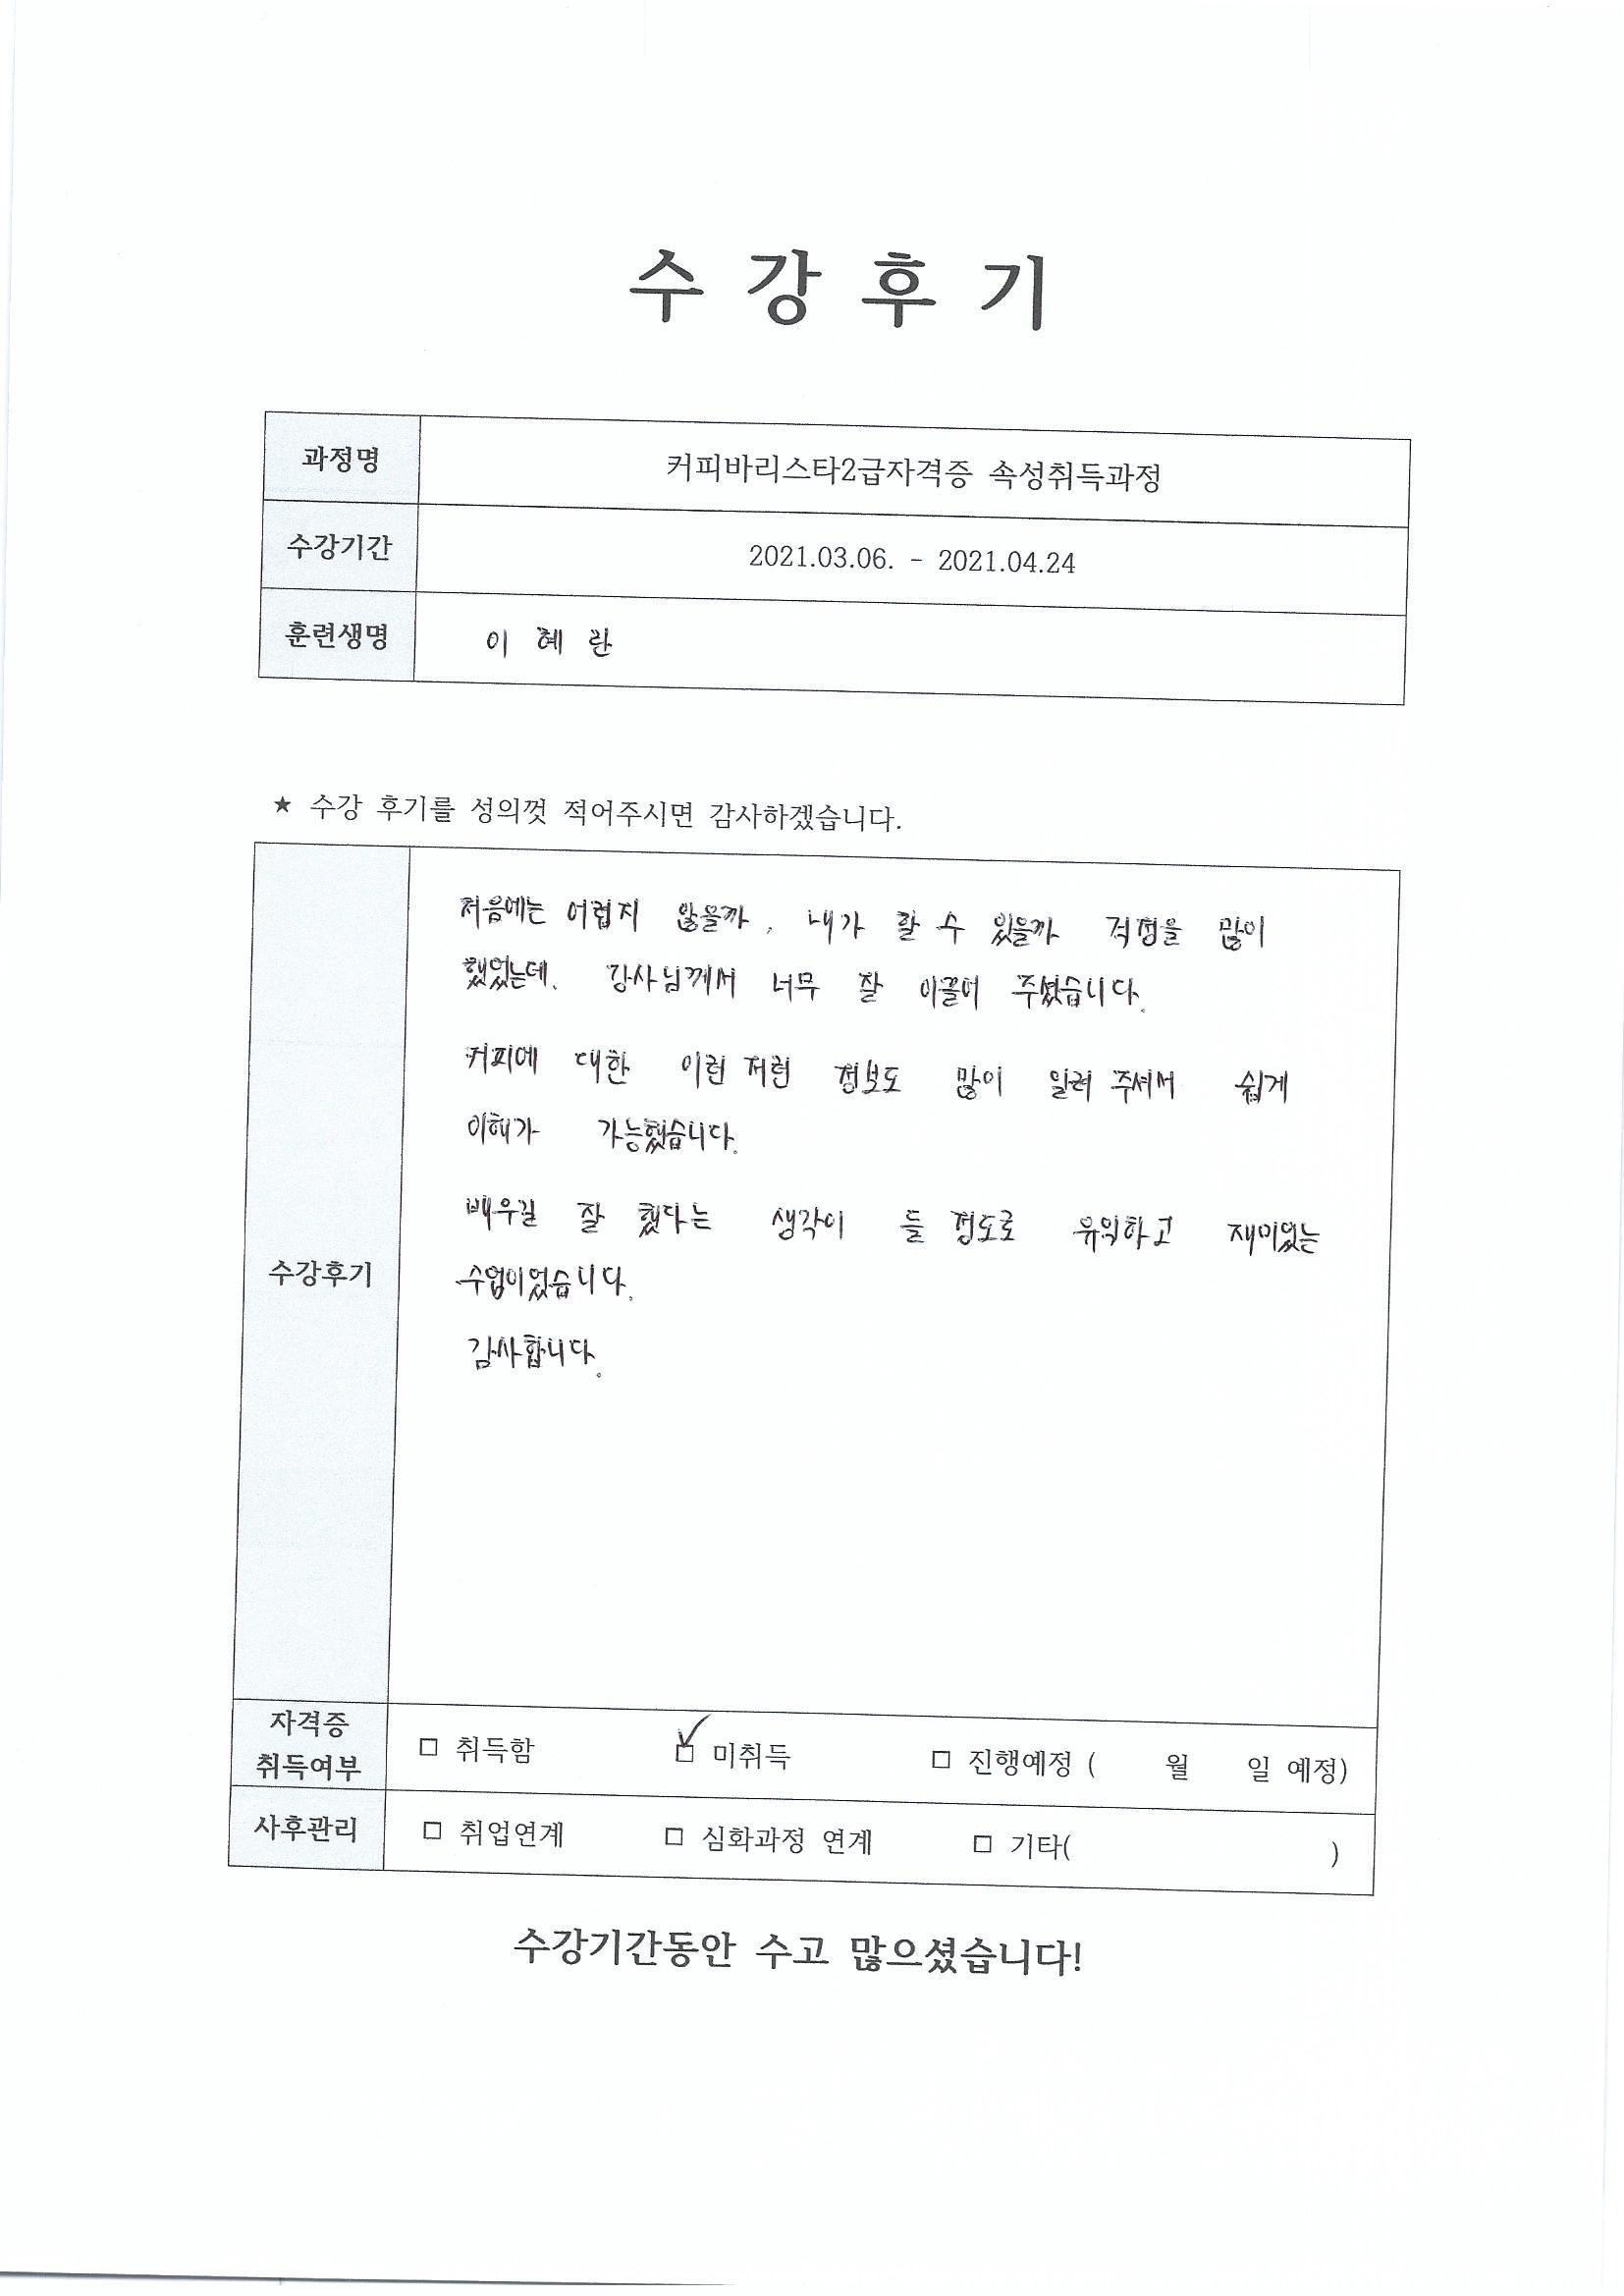 수 강 후 기
과정명 커피바리스타2급자격증 속성취득과정
수강기간 2021.03.06. - 2021.04.24
훈련생명 이 혜 란
★ 수강 후기를 성의껏 적어주시면 감사하겠습니다.
처음에는 어렵지 않을까, 내가 할 수 있을까 걱정을 많이
했었는데. 강사님께서 너무 잘 이끌어 주셨습니다.
커피에 대한 이런 저런 정보도 많이 알려 주셔서 쉽게
이해가 가능했습니다.
배우길 잘 했다는 생각이 들 정도로 유익하고 재미있는
수강후기
수업이었습니다.
감사합니다.
자격증
취득여부 □ 취득함 ☑ 미취득 □ 진행예정 ( 월 일 예정)
사후관리 □ 취업연계 □ 심화과정 연계 □ 기타( )
수강기간동안 수고 많으셨습니다!